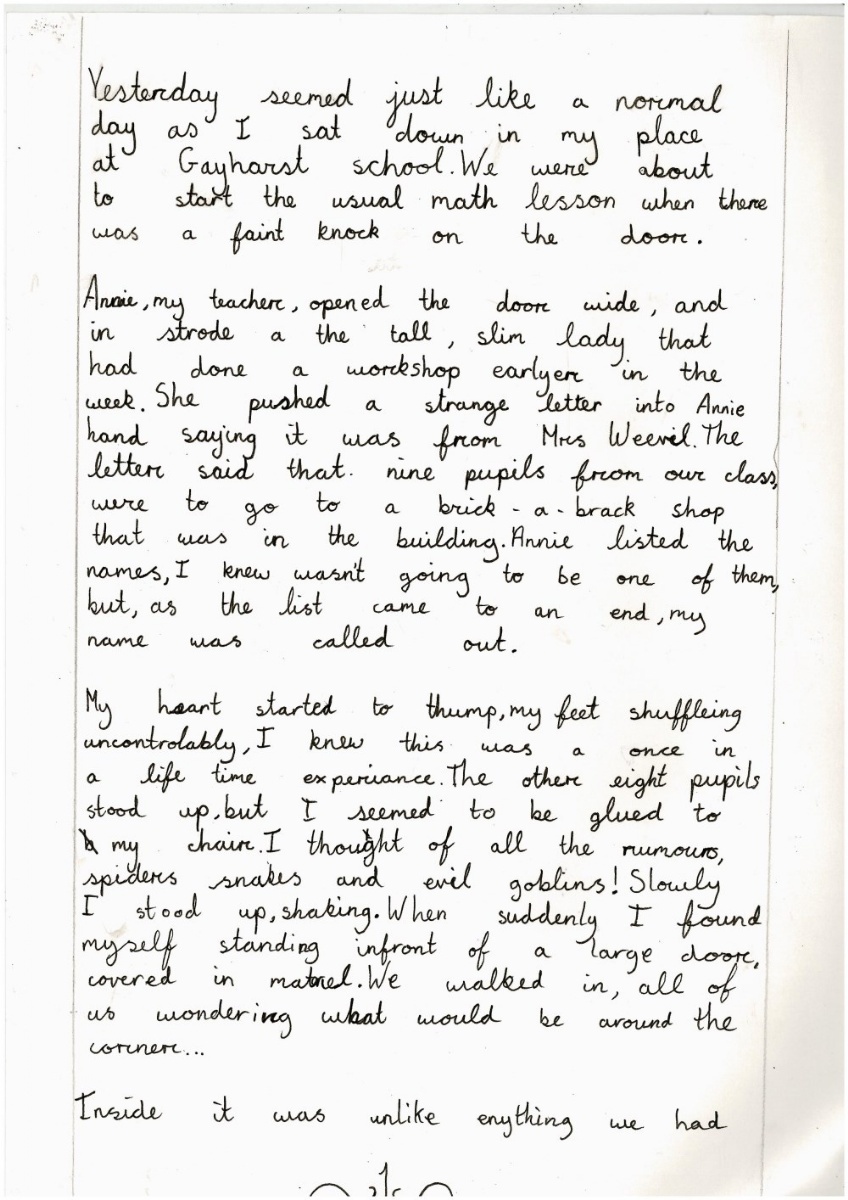 Yesterday seemed just like a normal
day as I sat down in my place
at Gayharst school. We were about
to start the usual math lesson when there
was a faint knock on the door.
Annie, my teacher, opened the door wide, and
in strode a the tall, slim lady that
had done a workshop earlyer in the
week. She pushed a strange letter into Annie
hand saying it was from Mrs Weevil. The
letter said that. nine pupils from our class,
were to go to a brick-a-brack shop
that was in the building. Annie listed the
names, I knew wasn't going to be one of them,
but, as the list came to an end, my
name was called out.
My heart started to thump, my feet shuffleing
uncontrolably, I knew this was a once in
a life time experiance. The other eight pupils
stood up, but I seemed to be glued to
my chair. I thought of all the rumours,
spiders snakes and evil goblins! Slowly
I stood up, shaking. When suddenly I found
myself standing infront of a large door,
covered in We walked in, all of
us wondering what would be around the
corner...
Inside it was unlike enything we had